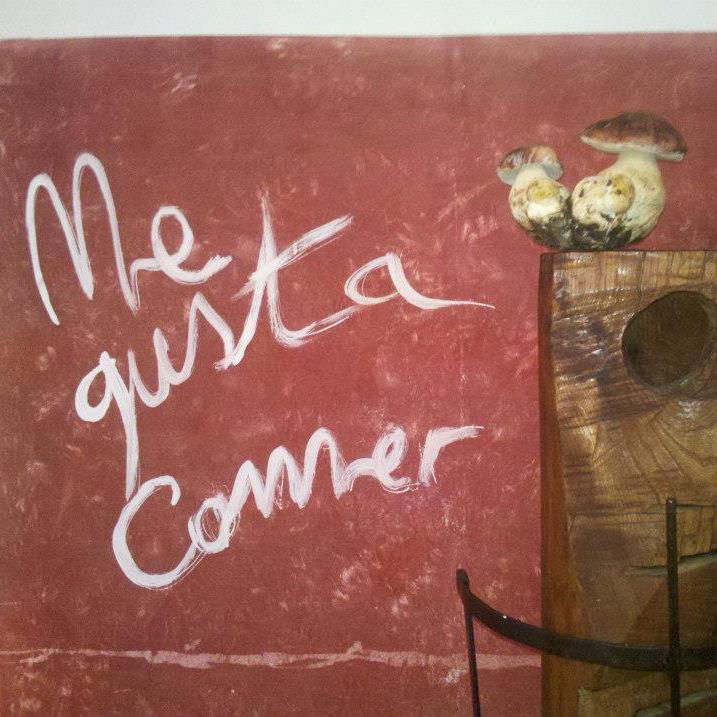 Me
gusta
Comer